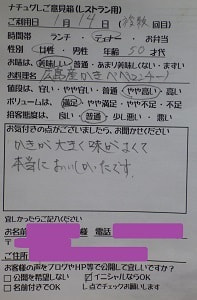 ナチュグしご意見箱(レストラン用)
ご利用日 1月14日(複数回目)
時間帯 ランチ・ディナー
性別 女性 男性 年齢 50才代
お味は 美味しい・普通・あまり美味しくない・まずい
お料理名 広島産かきペペロンチーノ
値段は 安い・やや安い・普通・やや高い・高い
ボリュームは 満足・やや満足・やや不足・不足
接客態度は 良い・普通・少し悪い・悪い
お気付きの点がございましたら、お聞かせください
かきが大きく味がよくて
本当においしかったです。
宜しかったらご記入ください
お名前 電話
〒
ご住所
お客様の声をブログやHP等で公開して宜しいですか?
公開を希望しない イニシャルならOK
名前だけOK レ点でチェックお願いします